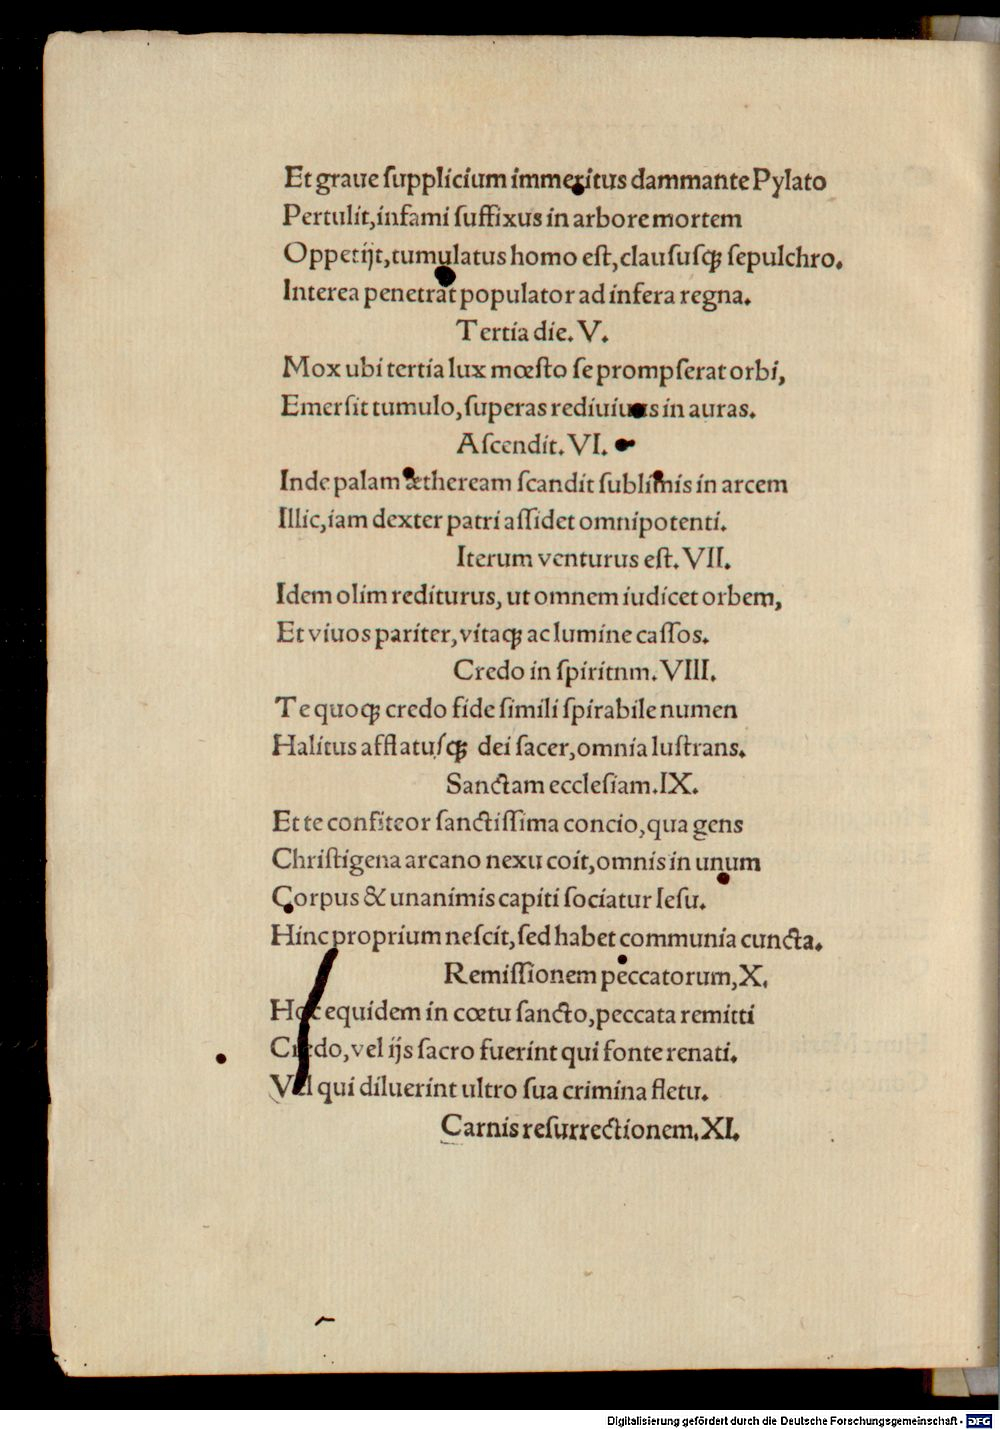 Et graue ſupplicium immeritus dammante Pylato
Pertulit, infami ſuffixus in arbore mortem
Oppetijt, tumulatus homo eſt, clauſuſqꝫ ſepulchro.
Interea penetrat populator ad infera regna.
Tertia die. V.
Mox ubi tertia lux mœſto ſe prompſerat orbi,
Emerſit tumulo, ſuperas rediuiuus in auras.
Aſcendit. VI.
Inde palam ætheream ſcandit ſublimis in arcem
Illic, iam dexter patri aſſidet omnipotenti.
Iterum venturus eſt. VII.
Idem olim rediturus, ut omnem iudicet orbem,
Et viuos pariter, vitaqꝫ ac lumine caſſos.
Credo in ſpiritnm. VIII.
Te quoqꝫ credo fide ſimili ſpirabile numen
Halitus afflatuſqꝫ dei ſacer, omnia luſtrans.
Sanctam eccleſiam. IX.
Et te confiteor ſanctiſſima concio, qua gens
Chriſtigena arcano nexu coit, omnis in unum
Corpus & unanimis capiti ſociatur Ieſu.
Hinc proprium neſcit, ſed habet communia cuncta.
Remiſſionem peccatorum, X.
Hoc equidem in cœtu ſancto, peccata remitti
Credo, vel ijs ſacro fuerint qui fonte renati.
Vel qui diluerint ultro ſua crimina fletu.
Carnis reſurrectionem. XI.
Digitalisierung gefördert durch die Deutsche Forschungsgemeinschaft - DFG